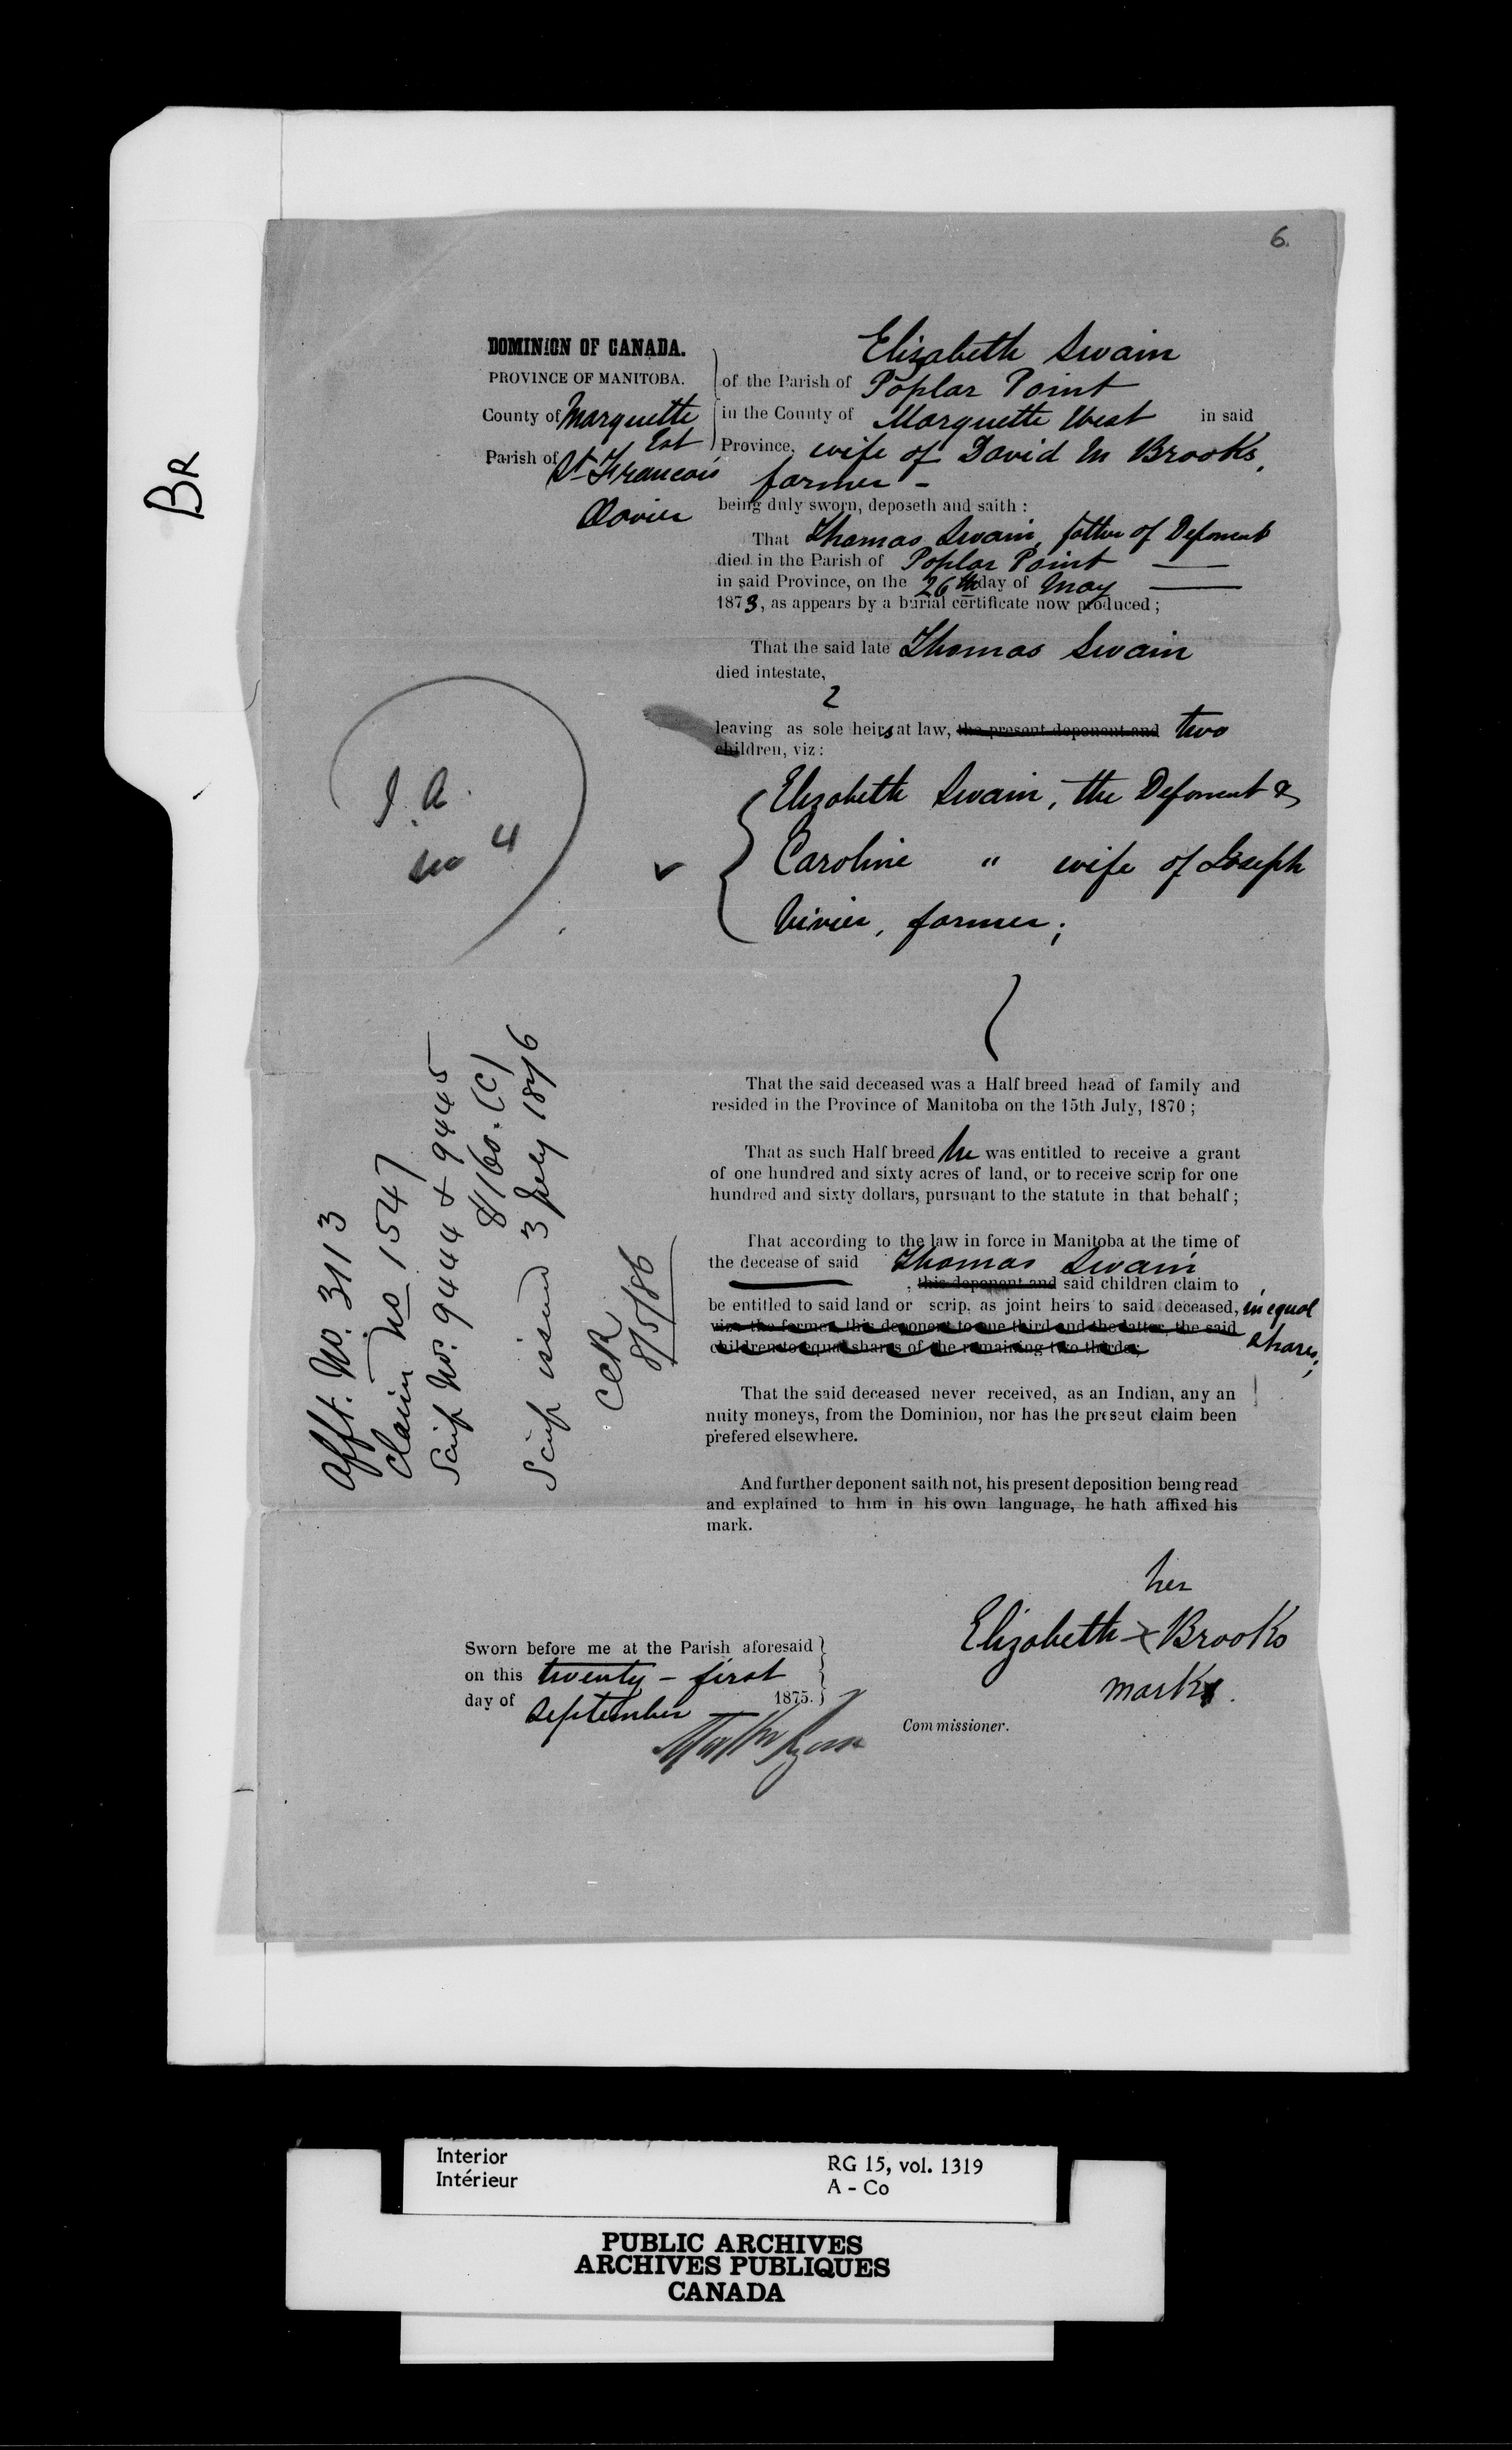 6.
BR
DOMINION OF CANADA.
PROVINCE OF MANITOBA.
County of Marquette
Est
Parish of St Francois
Xavier
Elizabeth Swain
of the Parish of Poplar Point
in the County of Marquette West in said
Province, wife of David M Brooks,
farmer -
being duly sworn, deposeth and saith :
That Thomas Swain, father of Deponent
died in the Parish of Poplar Point
in said Province, on the 26th day of May
1873, as appears by a burial certificate now produced ;
That the said late Thomas Swain
died intestate,
2
leaving as sole heirs at law, the present deponent and two
children, viz :
Elizabeth Swain, the Deponent &
Caroline " wife of Joseph
Vivier, farmer ;
No 4
That the said deceased was a Half breed head of family and
resided in the Province of Manitoba on the 15th July, 1870 ;
That as such Half breed he was entitled to receive a grant
of one hundred and sixty acres of land, or to receive scrip for one
hundred and sixty dollars, pursuant to the statute in that behalf ;
That according to the law in force in Manitoba at the time of
the decease of said Thomas Swain
, this deponent and said children claim to
be entitled to said land or scrip, as joint heirs to said deceased, in equal
viz: the former this deponent to one third and the latter, the said
children to equal shares of the remaining two thirds; shares;
That the said deceased never received, as an Indian, any an
nuity moneys, from the Dominion, nor has the present claim been
prefered elsewhere.
And further deponent saith not, his present deposition being read
and explained to him in his own language, he hath affixed his
mark.
Afft. No. 3113
Claim No 1547
Scrip Nos. 9444 & 9445
$160. (C)
Scrip issued 3 July 1876
CCR
8/5/86
her
Elizabeth x Brooks
mark.
Sworn before me at the Parish aforesaid
on this twenty-first
day of September 1875.
Commissioner.
Interior
Intérieur
RG 15, vol. 1319
A - Co
PUBLIC ARCHIVES
ARCHIVES PUBLIQUES
CANADA